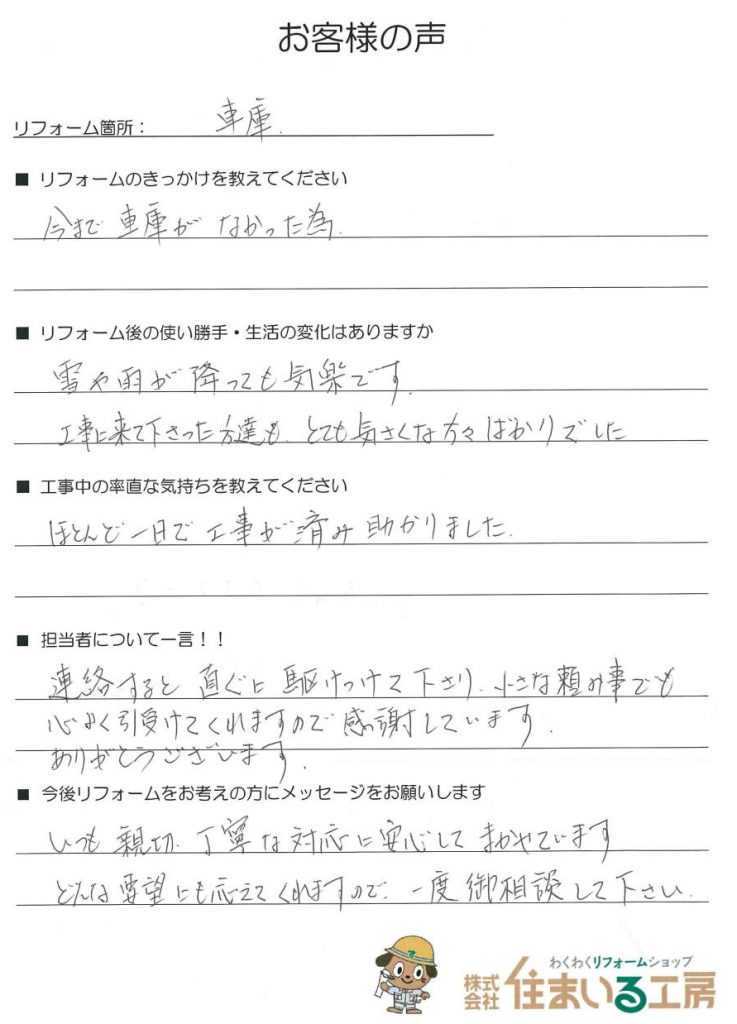 お客様の声
リフォーム箇所： 車庫.
■ リフォームのきっかけを教えてください
今まで車庫がなかった為.
■ リフォーム後の使い勝手・生活の変化はありますか
雪や雨が降っても気楽です.
工事に来て下さった方達も、とても気さくな方々ばかりでした
■ 工事中の率直な気持ちを教えてください
ほとんど一日で工事が済み助かりました.
■ 担当者について一言！！
連絡すると直ぐに駆けつけて下さり、小さな頼み事でも
心よく引受けてくれますので感謝しています.
ありがとうございます.
■ 今後リフォームをお考えの方にメッセージをお願いします
いつも親切、丁寧な対応に安心してまかせています
どんな要望にも応えてくれますので、一度御相談して下さい.
わくわくリフォームショップ
株式会社 住まいる工房